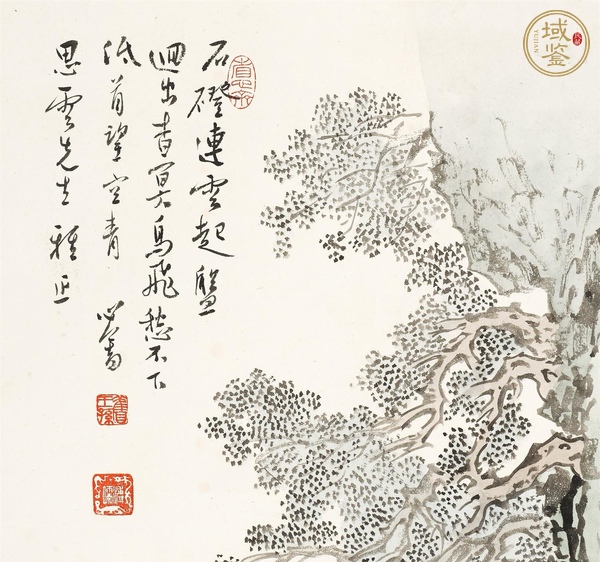 石磴連雲起盤
迴出杳冥鳥飛愁不下
低首望空青 心畬
思雲先生雅正
舊王孫
域鉴
YUJIAN